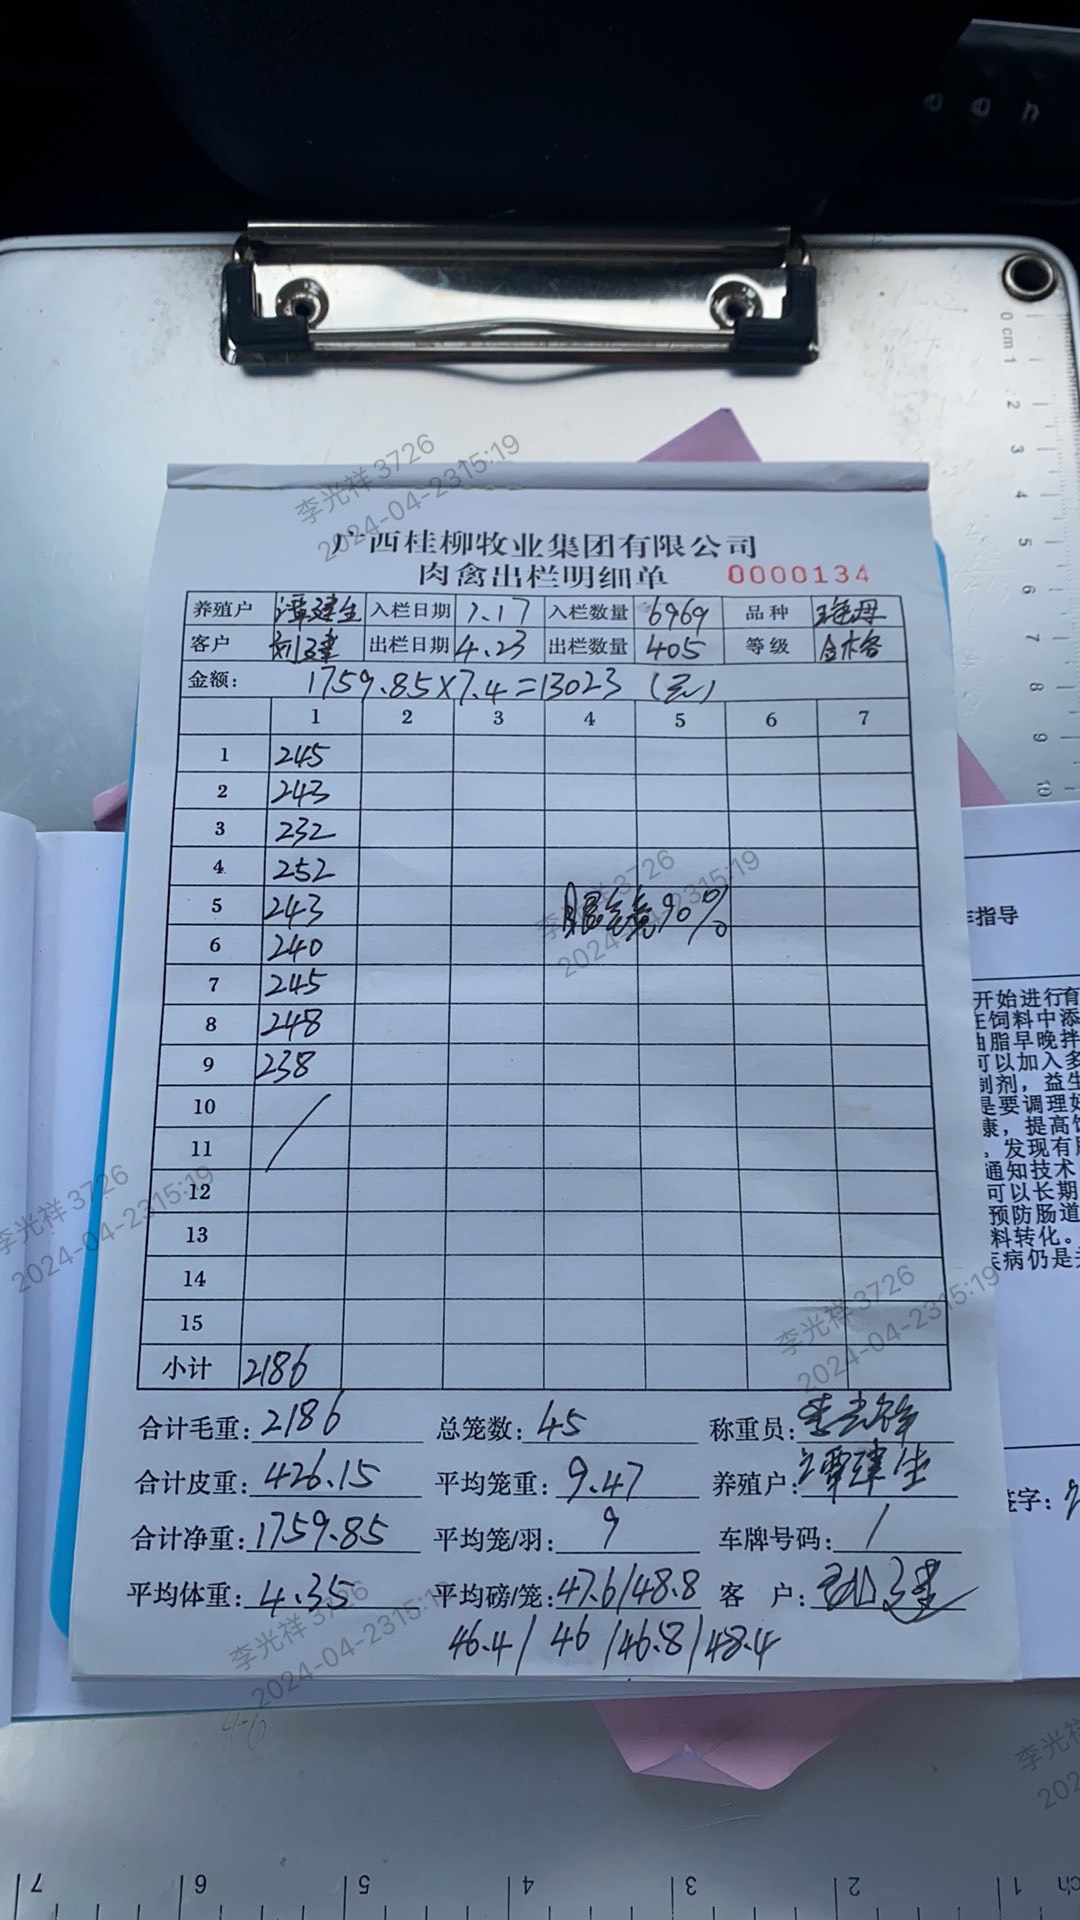 广西桂柳牧业集团有限公司
肉禽出栏明细单 0000134
养殖户 谭建生 入栏日期 1.17 入栏数量 6969 品种
客户 刘建 出栏日期 4.23 出栏数量 405 等级
金额: 1759.85×7.4=13023 (元)
1 2 3 4 5 6 7
1 245
2 243
3 232
4 252
5 243 眼毛亮90%
6 240
7 245
8 248
9 238
10
11
12
13
14
15
小计 2186
合计毛重: 2186 总笼数: 45 称重员: 李光祥
合计皮重: 426.15 平均笼重: 9.47 养殖户: 谭建生
合计净重: 1759.85 平均笼/羽: 9 车牌号码: /
平均体重: 4.35 平均磅/笼: 47.6/48.8 客 户: 刘建
46.4/ 46 /46.8/48.4
李光祥 3726
2024-04-23 15:19
李光祥 3726
2024-04-23 15:19
李光祥 3726
2024-04-23 15:19
李光祥 3726
2024-04-23 15:19
李光祥 3726
2024-04-23 15:19
李光祥
202
作指导
开始进行育
在饲料中添
油脂早晚拌
可以加入多
制剂，益生
是要调理好
康，提高饲
。发现有
通知技术
可以长期
预防肠道
料转化。
疾病仍是
签字:
0 cm 1
2
3
4
5
6
7
8
9
10
7 6 5 4 3 2 1 ch